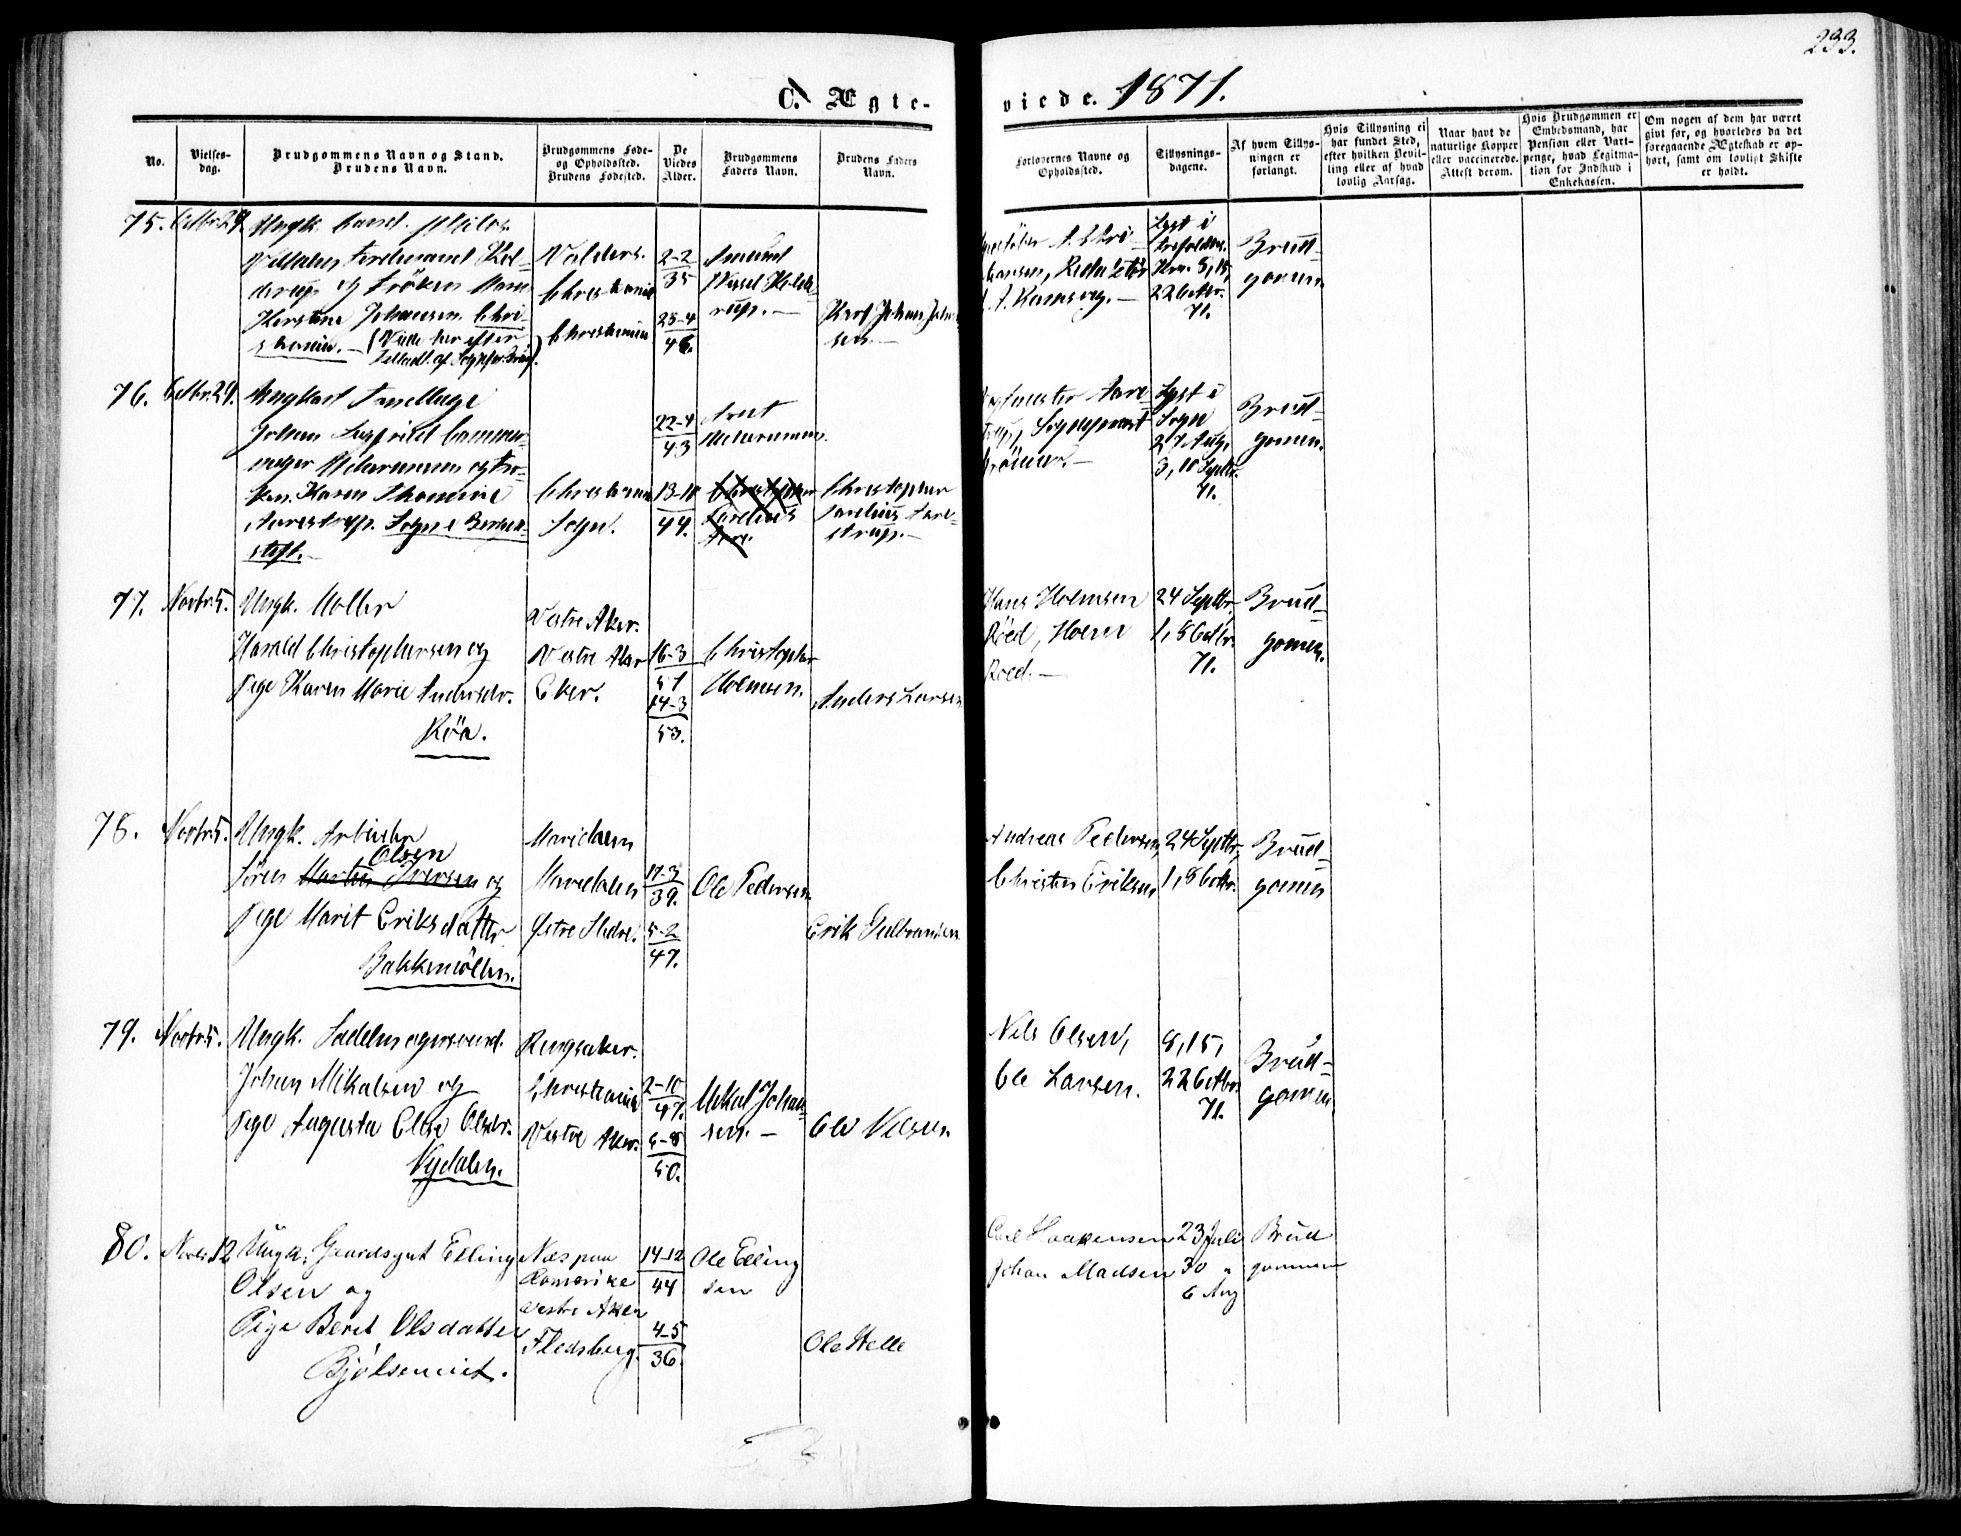 233.
C. Ægte-
viede. 1871.
No.
Vielses-
dag.
Brudgommens Navn og Stand.
Brudens Navn.
Brudgommens Føde-
og Opholdssted.
Brudens Fødested.
De
Viedes
Alder.
Brudgommens
Faders Navn.
Brudens Faders
Navn.
Forlovernes Navne og
Opholdssted.
Tillysnings-
dagene.
Af hvem Tillys-
ningen er
forlangt.
Hvis Tillysning ei
har fundet Sted,
efter hvilken Bevil-
ling eller af hvad
lovlig Aarsag.
Naar havt de
naturlige Kopper
eller vaccinerede.
Attest derom.
Hvis Brudgommen er
Embedsmand, har
Pension eller Vart-
penge, hvad Legitima-
tion for Indskud i
Enkekassen.
Om nogen af dem har været
givt før, og hvorledes da det
foregaaende Ægteskab er op-
hørt, samt om lovligt Skifte
er holdt.
75. Octbr. 29. Ungk. Cand. philos.
Vilhelm Ferdinand Hol-
drup og Frøken
Kirstine Johansen. Chri-
stiania. - (Viede her efter
Valders.
Christiania
Christiania
2-2
35
25-4
46.
Amund
Wessel Hold-
rup. -
Karl Johan Johan-
sen. -
Lyst i
8, 15,
22 Octbr.
71.
Brud-
gommen
76. Octbr. 29. Ungkarl
Johan
Karen Thomine
Aarestrup. Sogn i Bergen-
stift. -
Christiania
Sogn.
22-4
43
13-10
44.
Arnt
Christopher
Christopher
strup. -
Lyst i
Sogn
27 Aug,
3, 10 Septbr.
71.
Brud-
gommen.
77. Novbr. 5. Ungk. Møller
Harald Christophersen og
Pige Karen Marie Andersdr.
Röa.
Vestre Aker.
Vestre Aker
Eker.
16-3
51
14-3
53.
Christopher
Holmsen.
Anders Larsen
Hans Holmsen
Röed,
Röed. -
24 Septbr,
1, 8 Octbr.
71.
Brud-
gommen.
78. Novbr. 5. Ungk. Arbeider
Olsen
Sören Martin Iversen og
Pige Marit Eriksdatter
Bakkemöllen.
Maridalen
Maridalen
Östre Slidre.
17-3
39.
5-2
47.
Ole Pedersen.
Erik Gulbrandsen
Andreas Pedersen,
Christen Eriksen
24 Septbr,
1, 8 Octbr.
Brud-
gommen
79. Novbr. 5. Ungk. Sadelmagersvend.
Johan Mikalsen og
Pige Augusta Elise Olsdr.
Nydalen.
Ringsaker.
Christiania
Vestre Aker.
2-10
47.
6-8
50.
Mikal Johan-
sen. -
Ole Nilsen.
Nils Olsen,
Ole Larsen.
8, 15,
22 Octbr
71.
Brud-
gommen
80. Novbr. 12 Ungk. Gaardsgut Elling
Olsen og
Pige Berit Olsdatter
Bjølsenviet.
Næs paa
Romerike
Vestre Aker
Flesberg.
14-12
44
4-5
36.
Ole Elling
sen
Ole Helle
Carl Haakensen
Johan Madsen
23 Juli
30 "
6 Aug
Brud
gommen